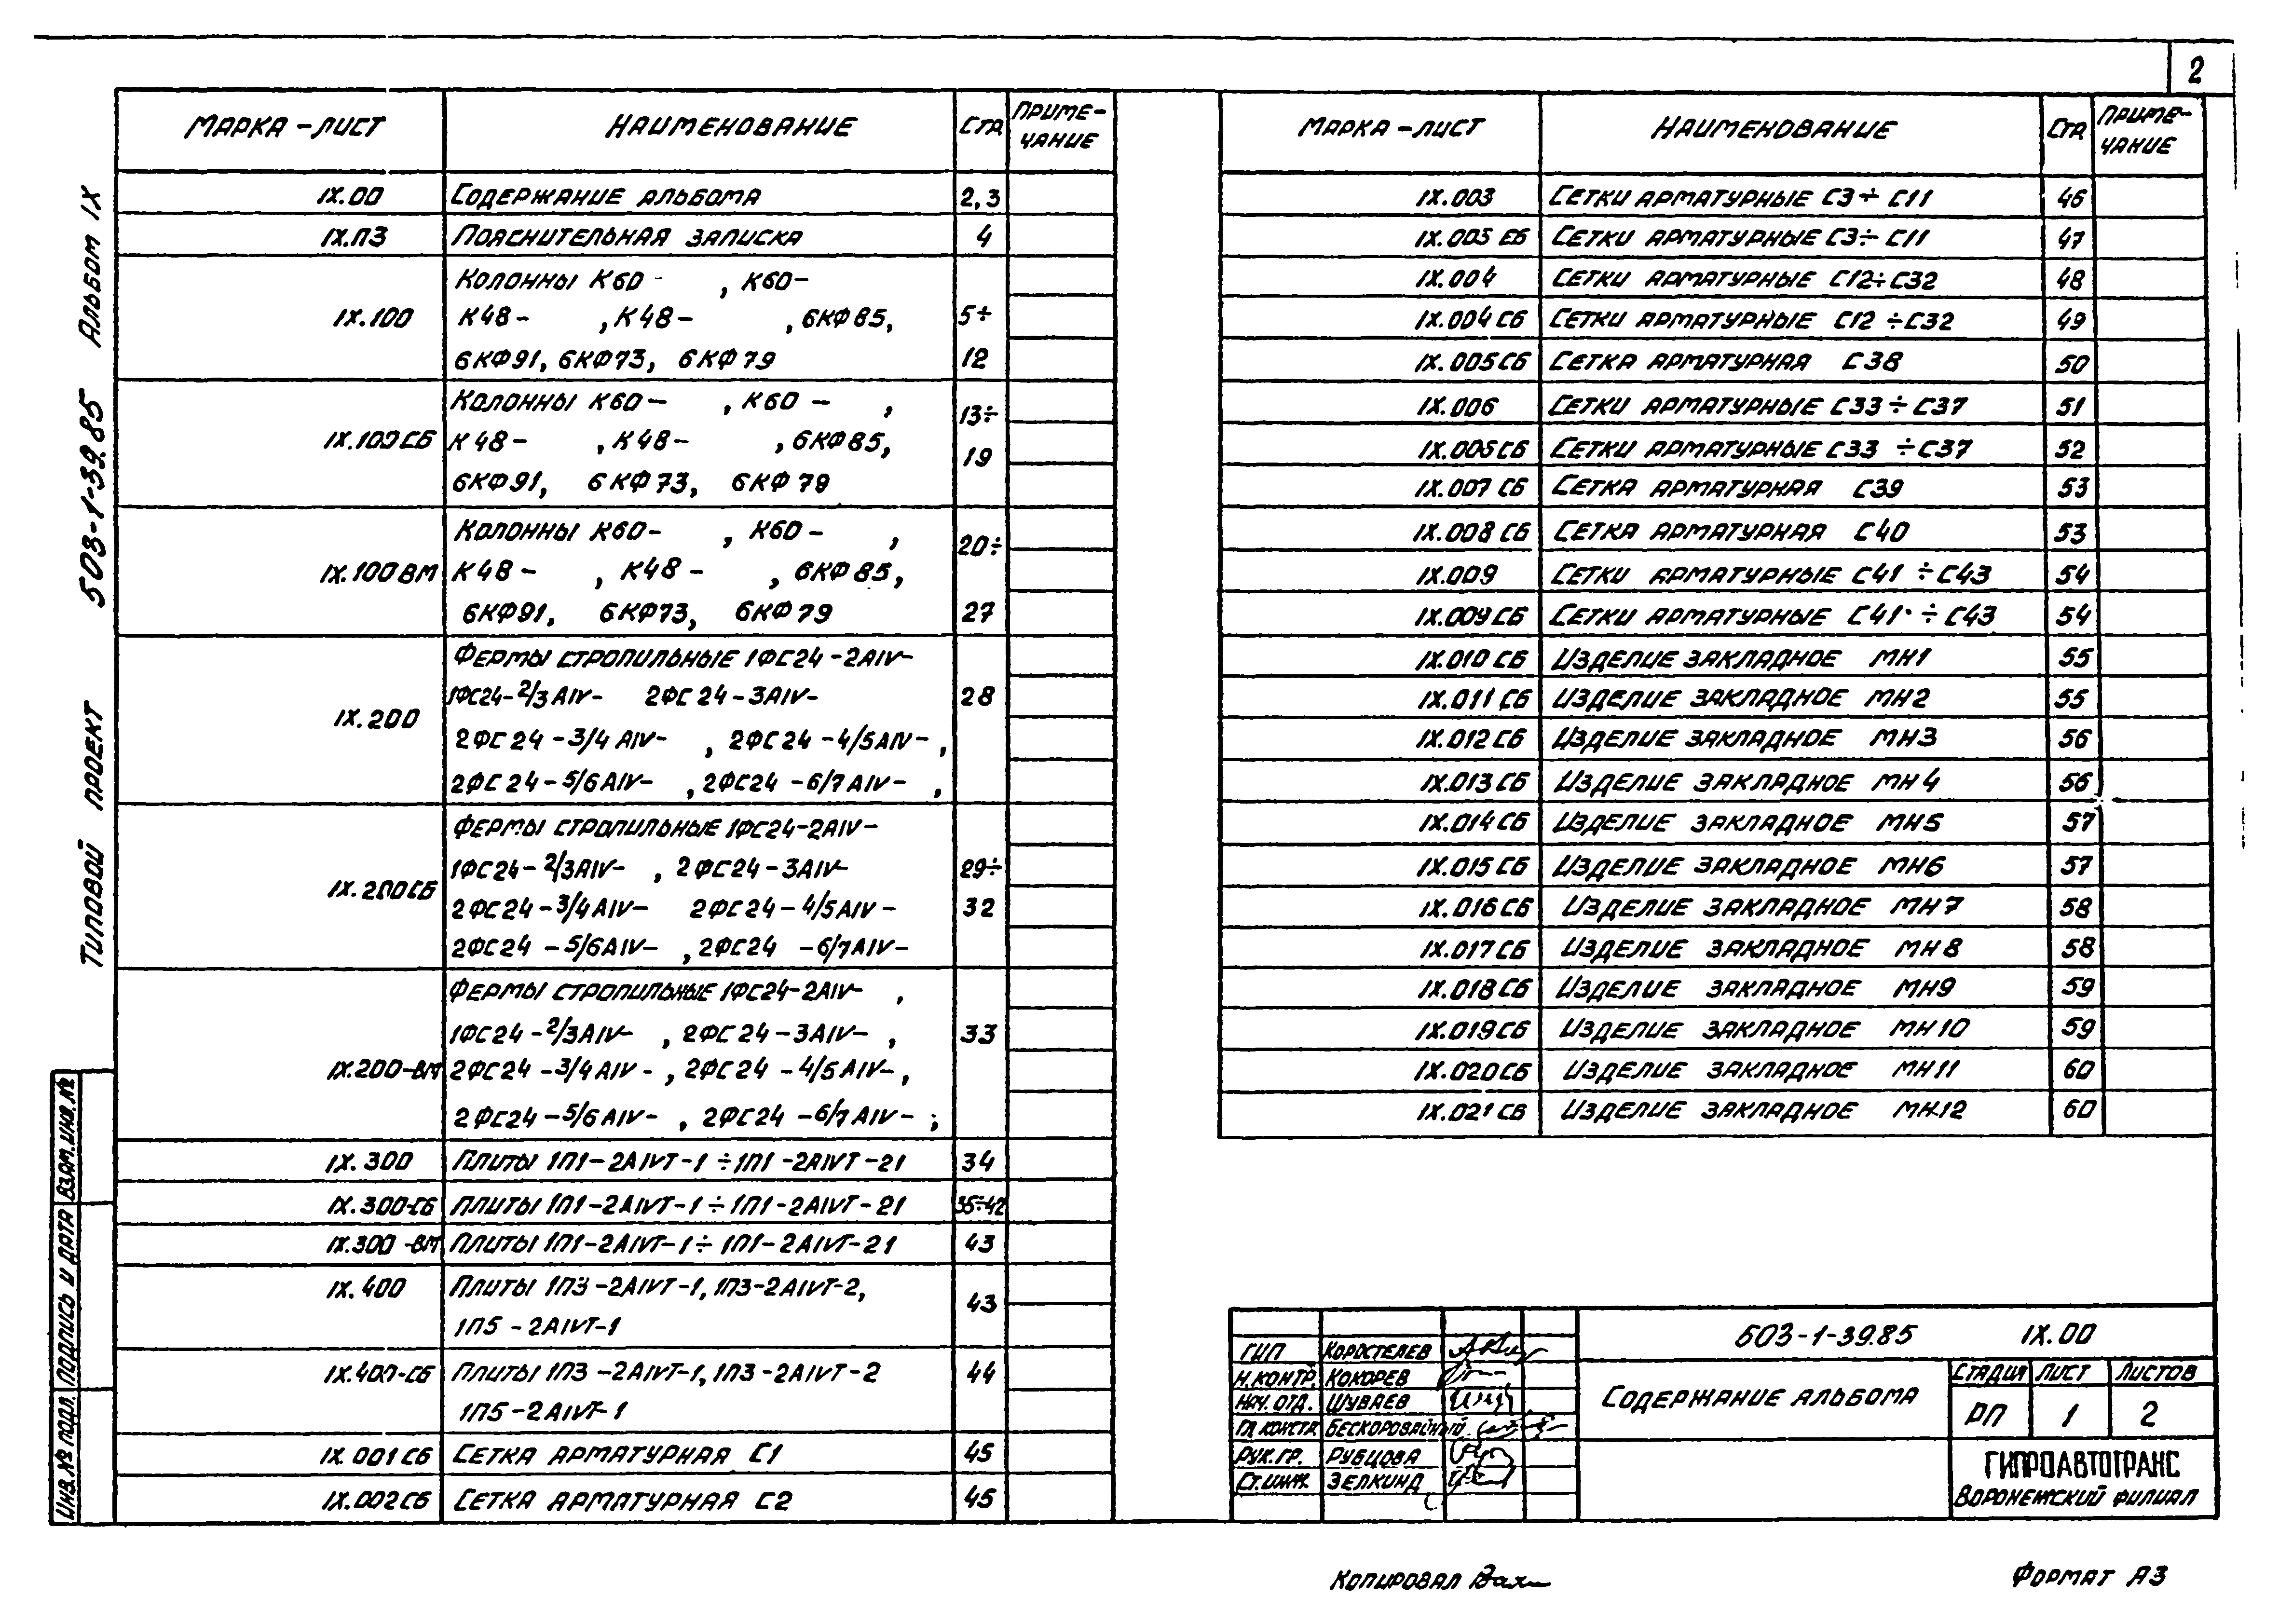 2
МАРКА-ЛИСТ НАИМЕНОВАНИЕ СТР ПРИМЕ-ЧАНИЕ
IX.00 СОДЕРЖАНИЕ АЛЬБОМА 2,3
IX.ПЗ ПОЯСНИТЕЛЬНАЯ ЗАПИСКА 4
КОЛОННЫ К60- , К60-
IX.100 К48- , К48- , 6КФ85, 5÷
6КФ91, 6КФ73, 6КФ79 12
КОЛОННЫ К60- , К60- , 13÷
IX.100СБ К48- , К48- , 6КФ85,
6КФ91, 6КФ73, 6КФ79 19
КОЛОННЫ К60- , К60- , 20÷
IX.100ВМ К48- , К48- , 6КФ85,
6КФ91, 6КФ73, 6КФ79 27
ФЕРМЫ СТРОПИЛЬНЫЕ 1ФС24-2АIV-
1ФС24-2/3АIV- 2ФС24-3АIV- 28
IX.200
2ФС24-3/4АIV- , 2ФС24-4/5АIV- ,
2ФС24-5/6АIV- , 2ФС24-6/7АIV- ,
ФЕРМЫ СТРОПИЛЬНЫЕ 1ФС24-2АIV-
1ФС24-2/3АIV- , 2ФС24-3АIV- 29÷
IX.200СБ
2ФС24-3/4АIV- 2ФС24-4/5АIV- 32
2ФС24-5/6АIV- , 2ФС24-6/7АIV-
ФЕРМЫ СТРОПИЛЬНЫЕ 1ФС24-2АIV- ,
1ФС24-2/3АIV- , 2ФС24-3АIV- , 33
IX.200-ВМ 2ФС24-3/4АIV- , 2ФС24-4/5АIV- ,
2ФС24-5/6АIV- , 2ФС24-6/7АIV- ;
IX.300 ПЛИТЫ 1П1-2АIVТ-1÷1П1-2АIVТ-21 34
IX.300-СБ ПЛИТЫ 1П1-2АIVТ-1÷1П1-2АIVТ-21 35÷42
IX.300-ВМ ПЛИТЫ 1П1-2АIVТ-1÷1П1-2АIVТ-21 43
IX.400 ПЛИТЫ 1П3-2АIVТ-1, 1П3-2АIVТ-2, 43
1П5-2АIVТ-1
IX.400-СБ ПЛИТЫ 1П3-2АIVТ-1, 1П3-2АIVТ-2 44
1П5-2АIVТ-1
IX.001СБ СЕТКА АРМАТУРНАЯ С1 45
IX.002СБ СЕТКА АРМАТУРНАЯ С2 45
МАРКА-ЛИСТ НАИМЕНОВАНИЕ СТР ПРИМЕ-ЧАНИЕ
IX.003 СЕТКИ АРМАТУРНЫЕ С3÷С11 46
IX.003СБ СЕТКИ АРМАТУРНЫЕ С3÷С11 47
IX.004 СЕТКИ АРМАТУРНЫЕ С12÷С32 48
IX.004СБ СЕТКИ АРМАТУРНЫЕ С12÷С32 49
IX.005СБ СЕТКА АРМАТУРНАЯ С38 50
IX.006 СЕТКИ АРМАТУРНЫЕ С33÷С37 51
IX.006СБ СЕТКИ АРМАТУРНЫЕ С33÷С37 52
IX.007СБ СЕТКА АРМАТУРНАЯ С39 53
IX.008СБ СЕТКА АРМАТУРНАЯ С40 53
IX.009 СЕТКИ АРМАТУРНЫЕ С41÷С43 54
IX.009СБ СЕТКИ АРМАТУРНЫЕ С41÷С43 54
IX.010СБ ИЗДЕЛИЕ ЗАКЛАДНОЕ МН1 55
IX.011СБ ИЗДЕЛИЕ ЗАКЛАДНОЕ МН2 55
IX.012СБ ИЗДЕЛИЕ ЗАКЛАДНОЕ МН3 56
IX.013СБ ИЗДЕЛИЕ ЗАКЛАДНОЕ МН4 56
IX.014СБ ИЗДЕЛИЕ ЗАКЛАДНОЕ МН5 57
IX.015СБ ИЗДЕЛИЕ ЗАКЛАДНОЕ МН6 57
IX.016СБ ИЗДЕЛИЕ ЗАКЛАДНОЕ МН7 58
IX.017СБ ИЗДЕЛИЕ ЗАКЛАДНОЕ МН8 58
IX.018СБ ИЗДЕЛИЕ ЗАКЛАДНОЕ МН9 59
IX.019СБ ИЗДЕЛИЕ ЗАКЛАДНОЕ МН10 59
IX.020СБ ИЗДЕЛИЕ ЗАКЛАДНОЕ МН11 60
IX.021СБ ИЗДЕЛИЕ ЗАКЛАДНОЕ МН12 60
ТИПОВОЙ ПРОЕКТ 503-1-39.85 АЛЬБОМ IX
ИНВ.№ ПОДЛ. ПОДПИСЬ И ДАТА ВЗАМ.ИНВ.№
503-1-39.85 IX.00
ГИП КОРОСТЕЛЕВ
Н.КОНТР КОКОРЕВ
НАЧ.ОТД. ШУВАЕВ
ГЛ.КОНСТР БЕСКОРОВАЙНЫЙ
РУК.ГР. РУБЦОВА
СТ.ИНЖ. ЗЕЛКИНД
СОДЕРЖАНИЕ АЛЬБОМА
СТАДИЯ ЛИСТ ЛИСТОВ
РП 1 2
ГИПРОАВТОТРАНС
ВОРОНЕЖСКИЙ ФИЛИАЛ
КОПИРОВАЛ
ФОРМАТ А3